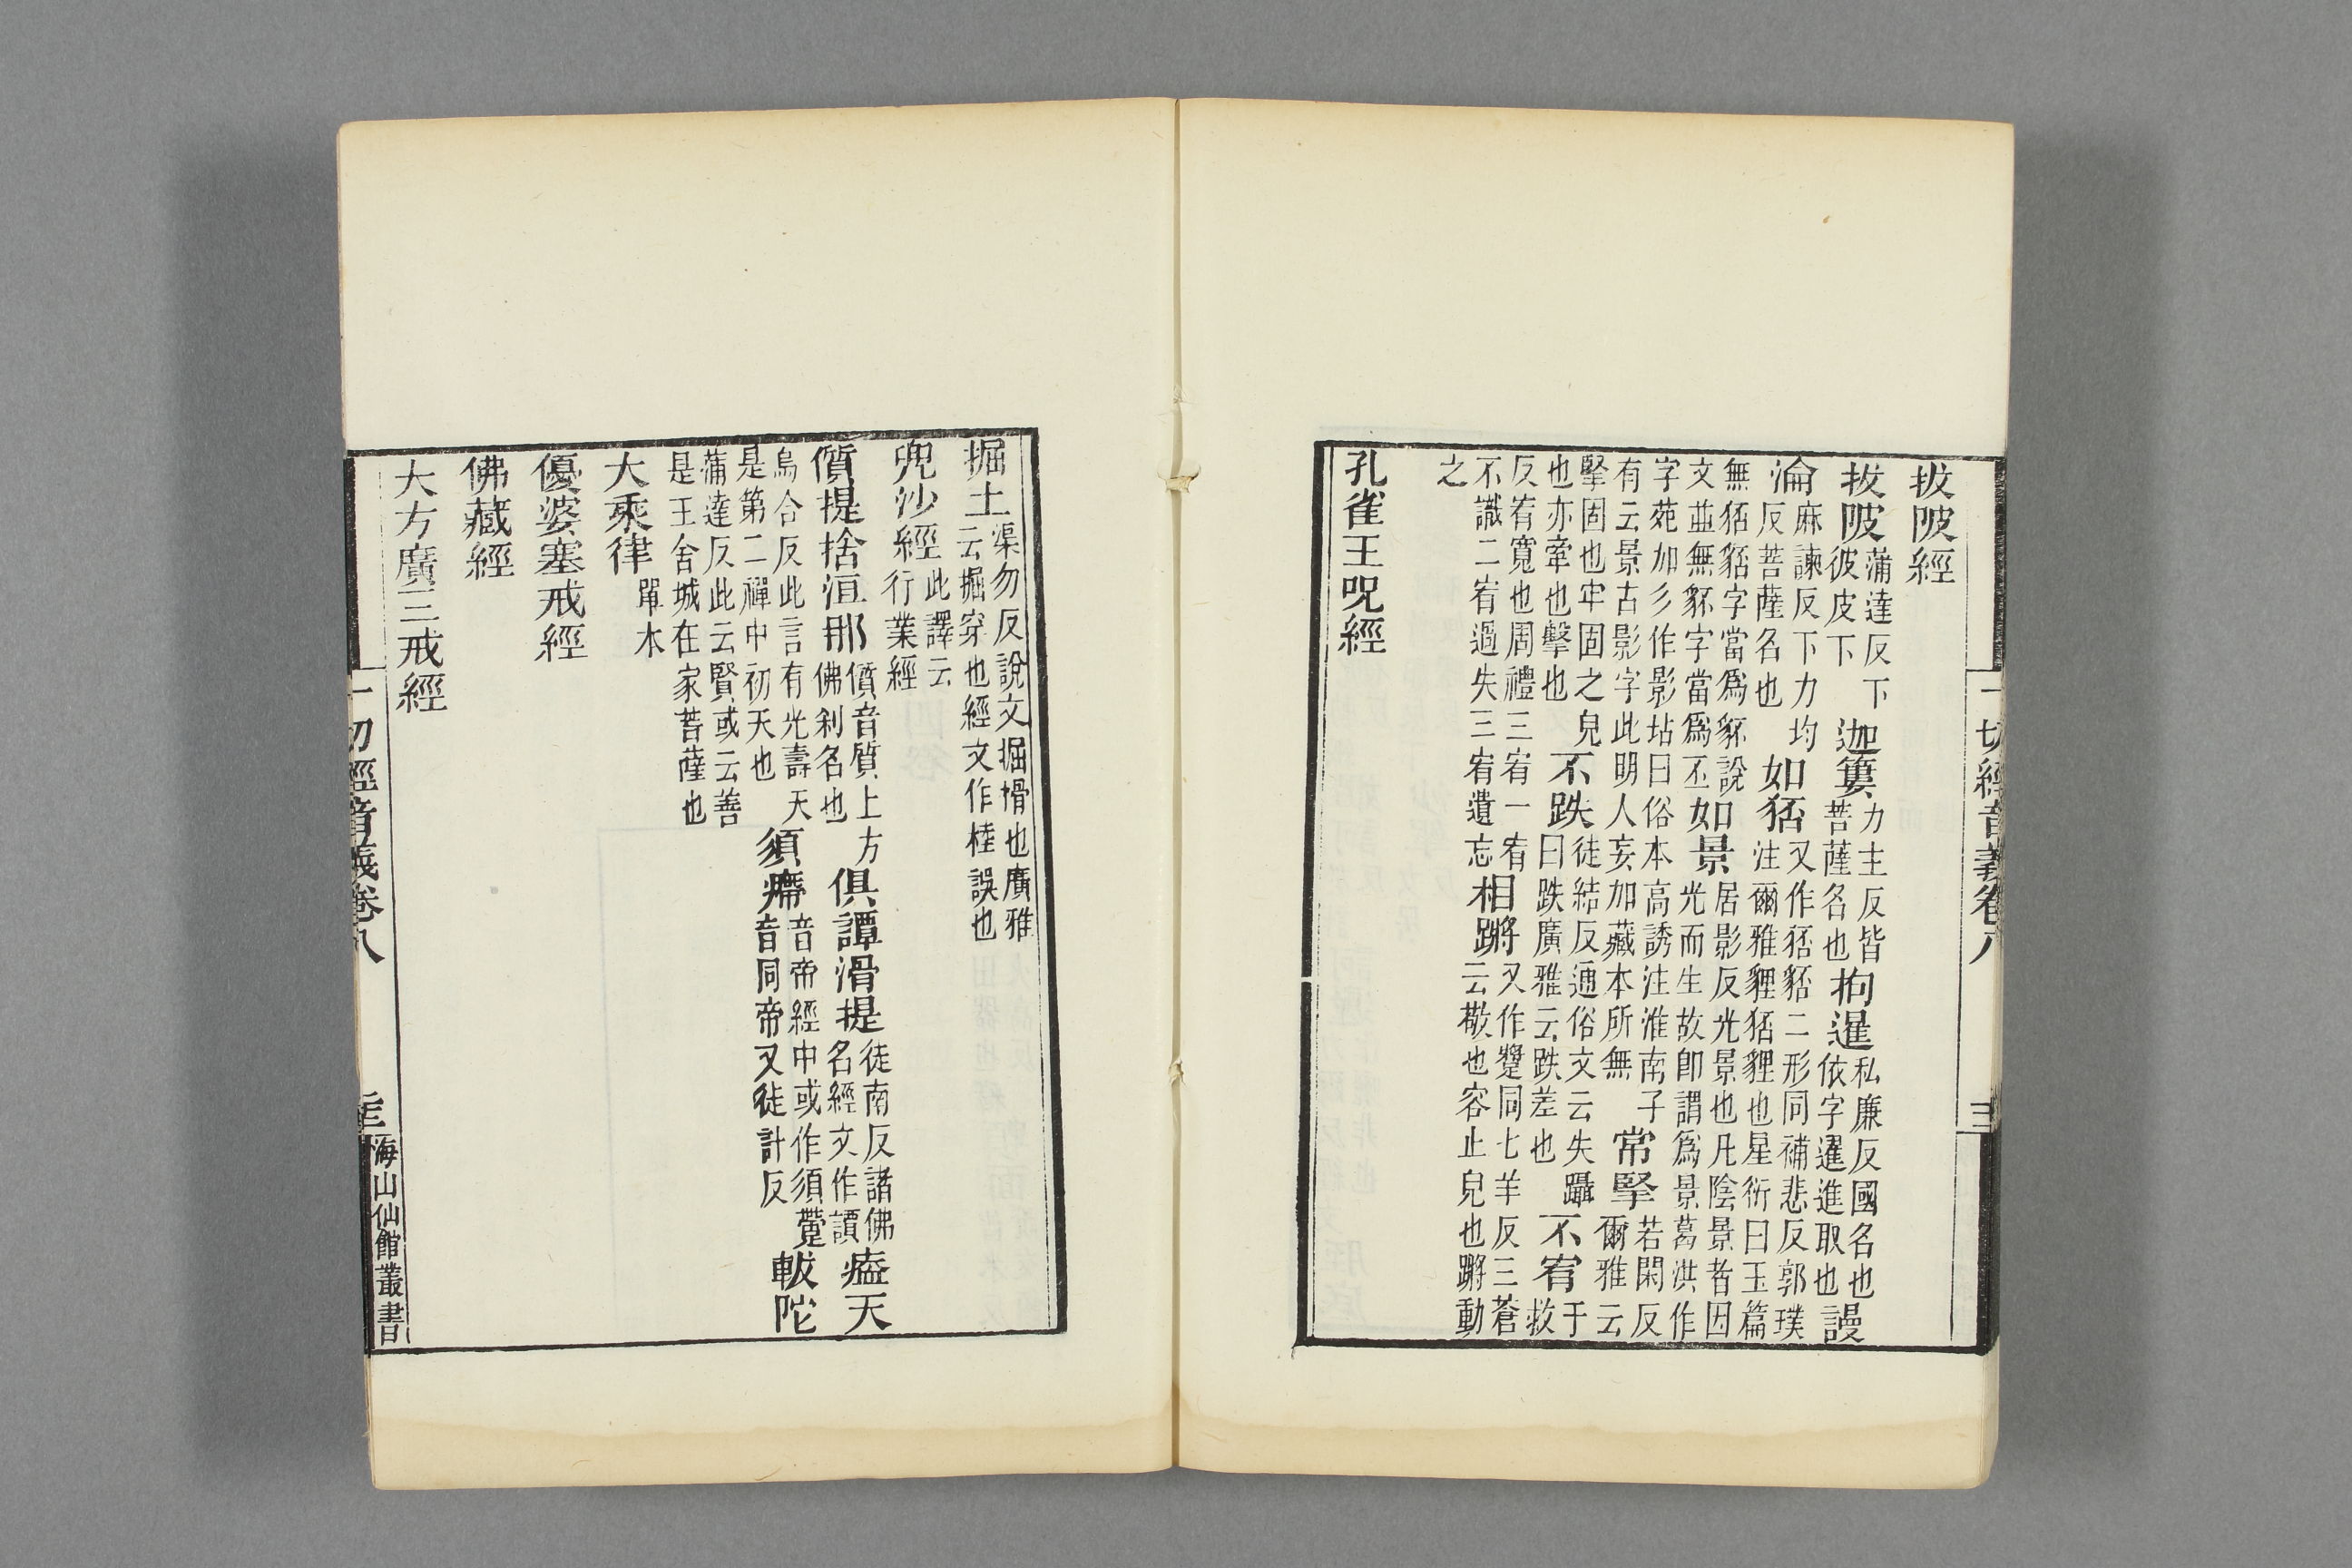 拔陂經
拔陂蒲達反下彼皮下迦簍力主反皆菩薩名也拘暹私廉反國名也依字暹進取也謾
淪麻諫反下力均反菩薩名也如狜又作狉豾二形同補悲反郭璞注爾雅貍狜貍也星衍曰玉篇
無狜豾字當爲豾說文並無豾字當爲丕如景居影反光景也凡陰景者因光而生故卽謂爲景葛洪作
字苑加彡作影坫曰俗本高誘注淮南子有云景古影字此明人妄加藏本所無常掔若閑反爾雅云
掔固也牢固之皃也亦牽也擊也不跌徒結反通俗文云失躡曰跌廣雅云跌差也不宥于救
反宥寬也周禮三宥一宥不識二宥過失三宥遺忘相蹡又作蹩同七羊反三蒼云檄也容止皃也蹡動
之
孔雀王呪經
一切經音義卷八
掘土渠勿反說文掘搰也廣雅云掘穿也經文作㭐誤也
兜沙經此譯云行業經
儨提捨洹那儨音質上方佛刹名也俱譚滑提徒南反諸佛名經文作譚瘂天
烏合反此言有光壽天是第二禪中初天也須㿃音帝經中或作須躄音同帝又徒計反軷陀
蒲達反此云賢或云善是王舍城在家菩薩也
大乘律單本
優婆塞戒經
佛藏經
大方廣三戒經
一切經音義卷八
海山仙館叢書